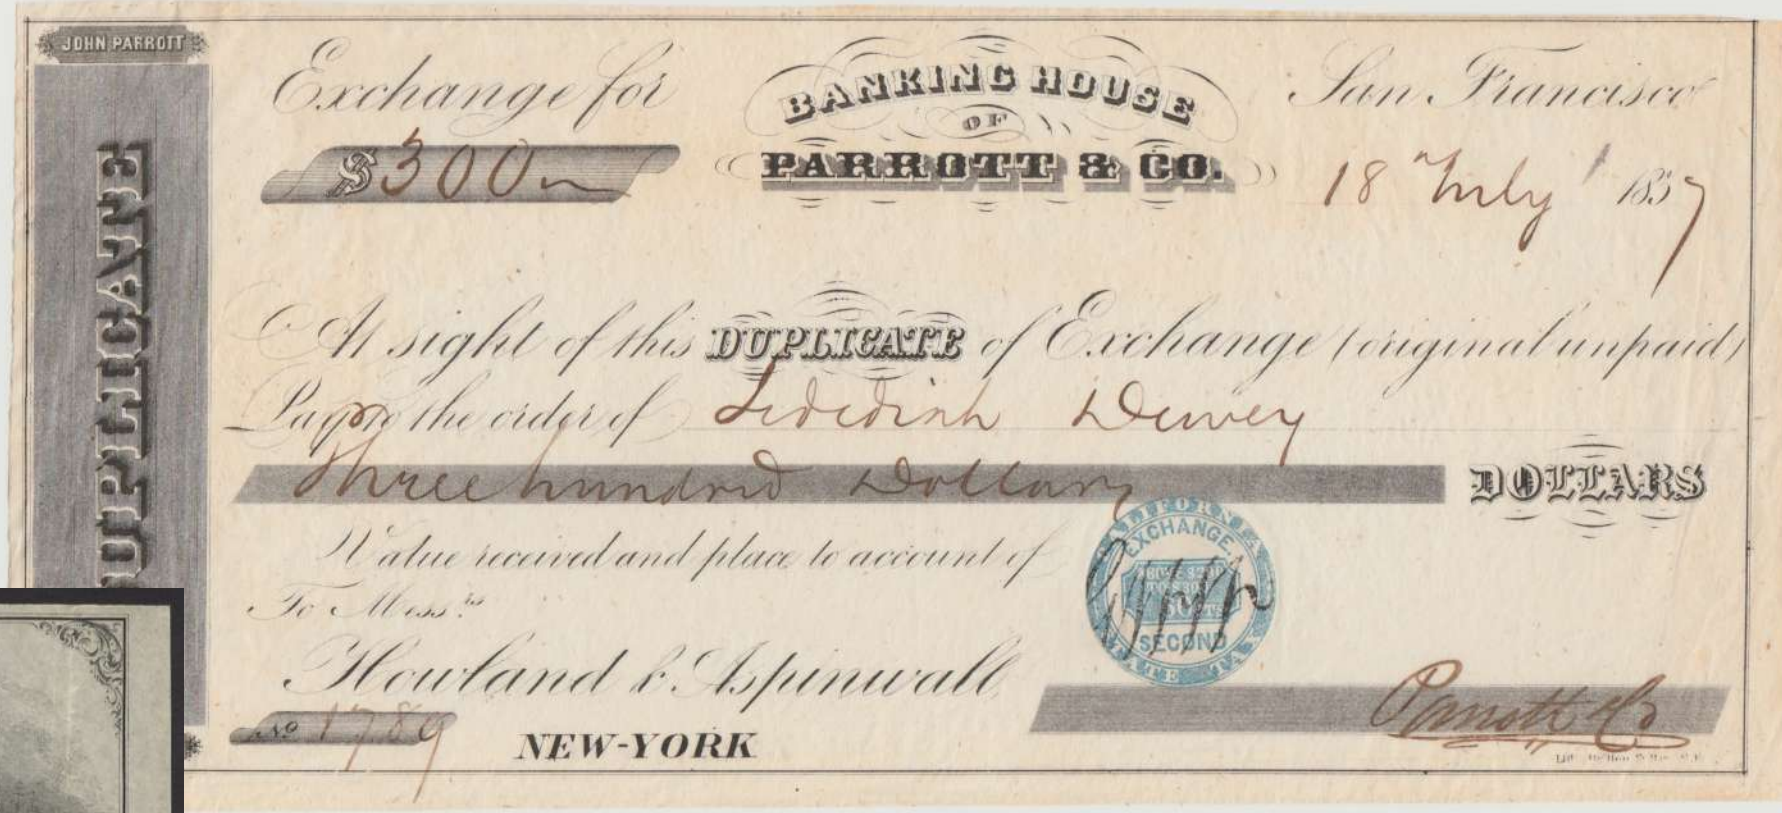 JOHN PARROTT
DUPLICATE
Exchange for
$300
BANKING HOUSE
OF
PARROTT & CO.
San Francisco
18 July 1857
At sight of this DUPLICATE of Exchange (original unpaid)
Pay to the order of Dewey
Three hundred Dollars DOLLARS
Value received and place to account of
To Mess.rs
Howland & Aspinwall
No 1789
NEW-YORK
CALIFORNIA
EXCHANGE.
ABOVE $200
TO $300
SECOND
STATE TAX
Parrott & Co